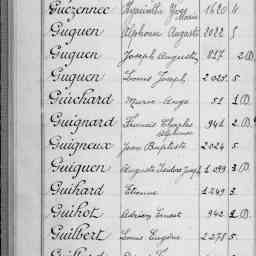 Guézennec Hyacinthe Yves Marie 1620 4
Guguen Alphonse Auguste 2022 5
Guguen Joseph Auguste 817 2 (D)
Guguen Louis Joseph 2025 5
Guichard Marie Ange 51 1 (D)
Guignard Francis Charles Alphonse 941 2 (D)
Guigneux Jean Baptiste 2024 5
Guiguen Auguste Isidore Joseph 1099 3 (D)
Guihard Etienne 1249 3
Guihot Adrien Ernest 942 2 (D)
Guilbert Louis Eugène 2278 5